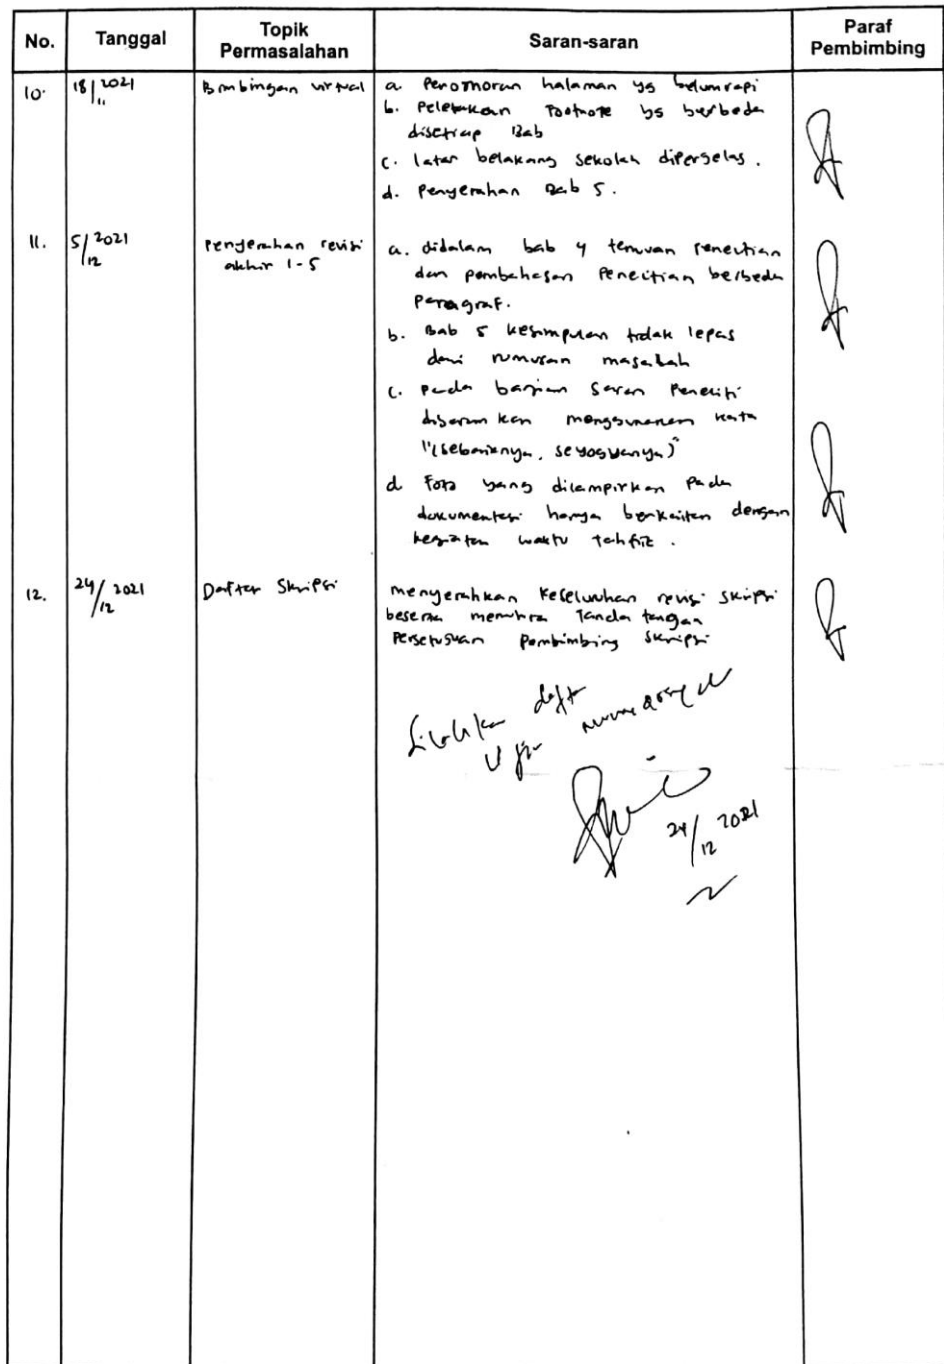 No. Tanggal Topik Permasalahan Saran-saran Paraf Pembimbing
10. 18/11 2021 Bimbingan virtual a. Penomoran halaman yg belum rapi
b. Peletakan Footnote yg berbeda
disetiap Bab
c. latar belakang sekolah diperjelas.
d. Penyerahan Bab 5.
11. 5/12 2021 Penyerahan revisi a. didalam bab 4 temuan penelitian
akhir 1-5 dan pembahasan Penelitian berbeda
Paragraf.
b. Bab 5 kesimpulan tidak lepas
dari rumusan masalah
c. Pada bagian saran Peneliti
disarankan menggunakan kata
"(sebaiknya, seyogyanya)"
d Foto yang dilampirkan Pada
dokumentasi hanya berkaitan dengan
kegiatan waktu tahfiz.
12. 24/12 2021 Daftar Skripsi menyerahkan keseluruhan revisi skripsi
beserta meminta Tanda tangan
Persetujuan Pembimbing Skripsi
Silahkan daftar
Ujian munaqosyah
24/12 2021